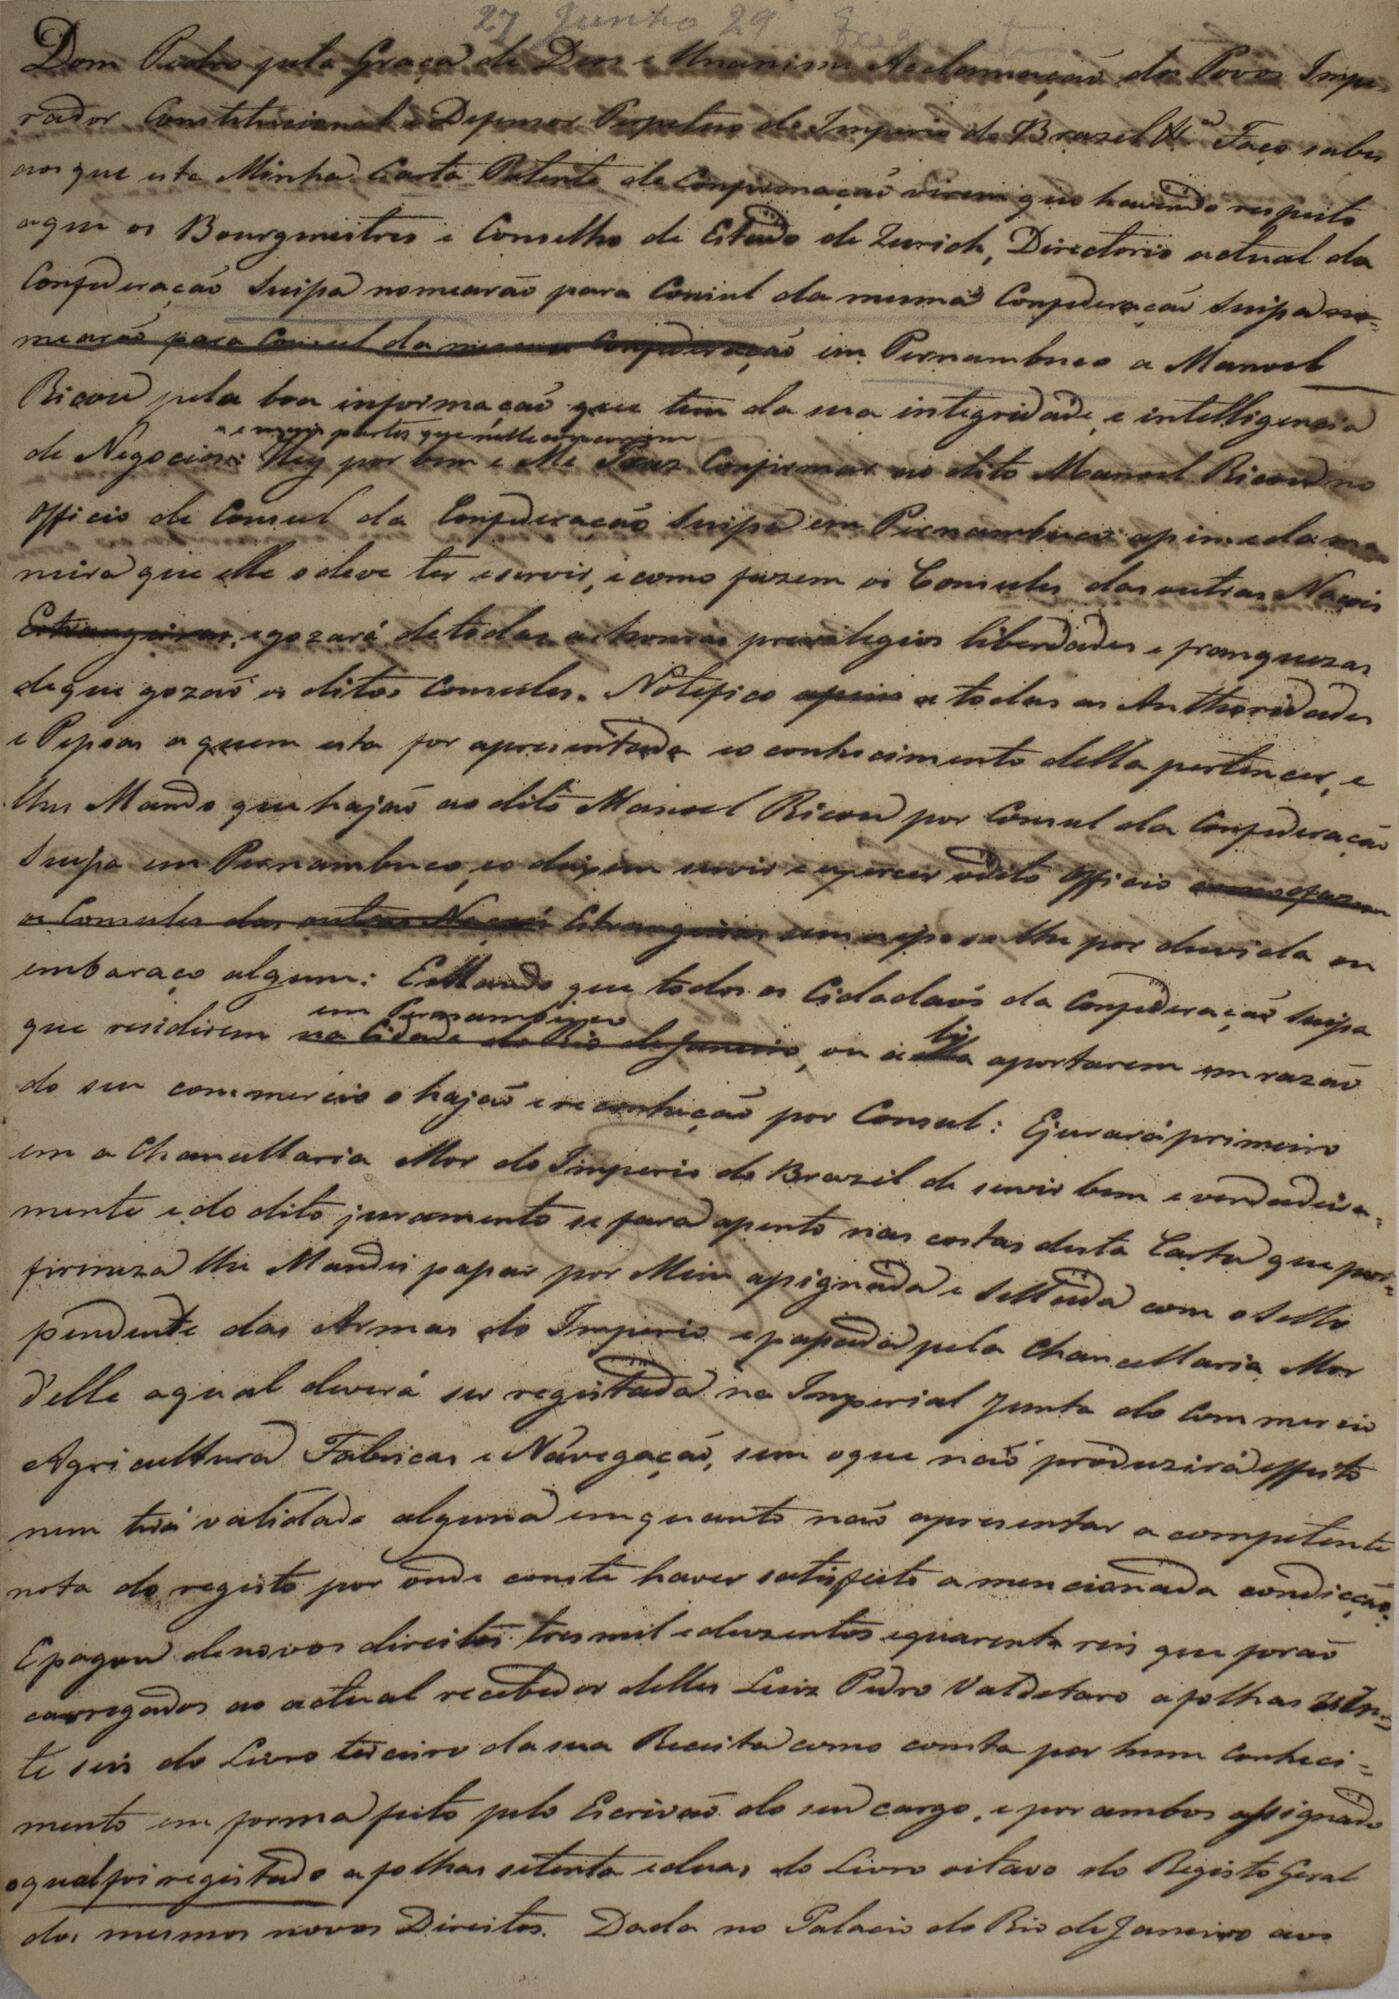 27 Junho 29
Dom Pedro pela Graça de Deos e Unanime Acclamação dos Povos Impe-
rador Constitucional e Defensor Perpetuo do Imperio do Brazil &a Faço saber
aos que esta Minha Carta Patente de Confirmação virem que havendo respeito
aque os Bourgmestres e Conselho de Estado de Zurich, Directorio actual da
Confederação Suissa nomearão para Consul da mesma Confederação Suissa no=
mearão para Consul da mesma Confederação em Pernambuco a Manoel
Ricou pela boa informação que tem da sua integridade, e intelligencia
e mais partes que nelle concorrem
de Negocios: Hey por bem e Me Praz Confirmar ao dito Manoel Ricou no
Officio de Consul da Confederação Suissa em Pernambuco assim e da ma-
neira que elle o deve ter e servir, e como fazem os Consules das outras Naçois
Estrangeiras, e gozará de todas as honras previlegios liberdades e franquezas
de que gozaõ os ditos Consules. Notifico assim a todas as Authoridades
e Pessoas a quem esta for apresentada e o conhecimento della pertencer, e
lhes Mando que hajaõ ao dito Manoel Ricou por Consul da Confederação
Suissa em Pernambuco, e o deixem servir e exercer o dito Officio como o fazem
os Consules das outras Naçois Estrangeiras sem a isso se lhe por duvida ou
embaraço algum: E Mando que todos os Cidadaõs da Confederação Suissa
em Pernambuco
que residirem na Cidade do Rio de Janeiro, ou a ella aportarem em razaõ
do seu commercio o hajaõ e reconheçaõ por Consul: E jurará primeiro
em a Chancellaria Mor do Imperio do Brazil de servir bem e verdadeira=
mente e do dito juramento se fará assento nas costas desta Carta que por=
firmeza lhe Mandei passar por Mim assignada e Sellada com o Sello
pendente das Armas do Imperio e passada pela Chancellaria Mor
d'elle a qual deverá ser registada na Imperial Junta do Commercio
Agricultura Fabricas e Navegação, sem o que naõ produzirá effeito
nem terá validade alguma em quanto naõ apresentar a competente
nota do registo por onde conste haver satisfeito a mencionada condicção.
E pagou de novos direitos tres mil e duzentos e quarenta reis que foraõ
carregados ao actual recebedor delles Luiz Pedro Valdetaro a folhas vin=
te seis do Livro terceiro da sua Receita como consta por hum Conheci=
mento em forma feito pelo Escrivaõ do seu cargo, e por ambos assignado
o qual foi registado a folhas setenta e duas do Livro oitavo do Registo Geral
dos mesmos novos Direitos. Dada no Palacio do Rio de Janeiro aos